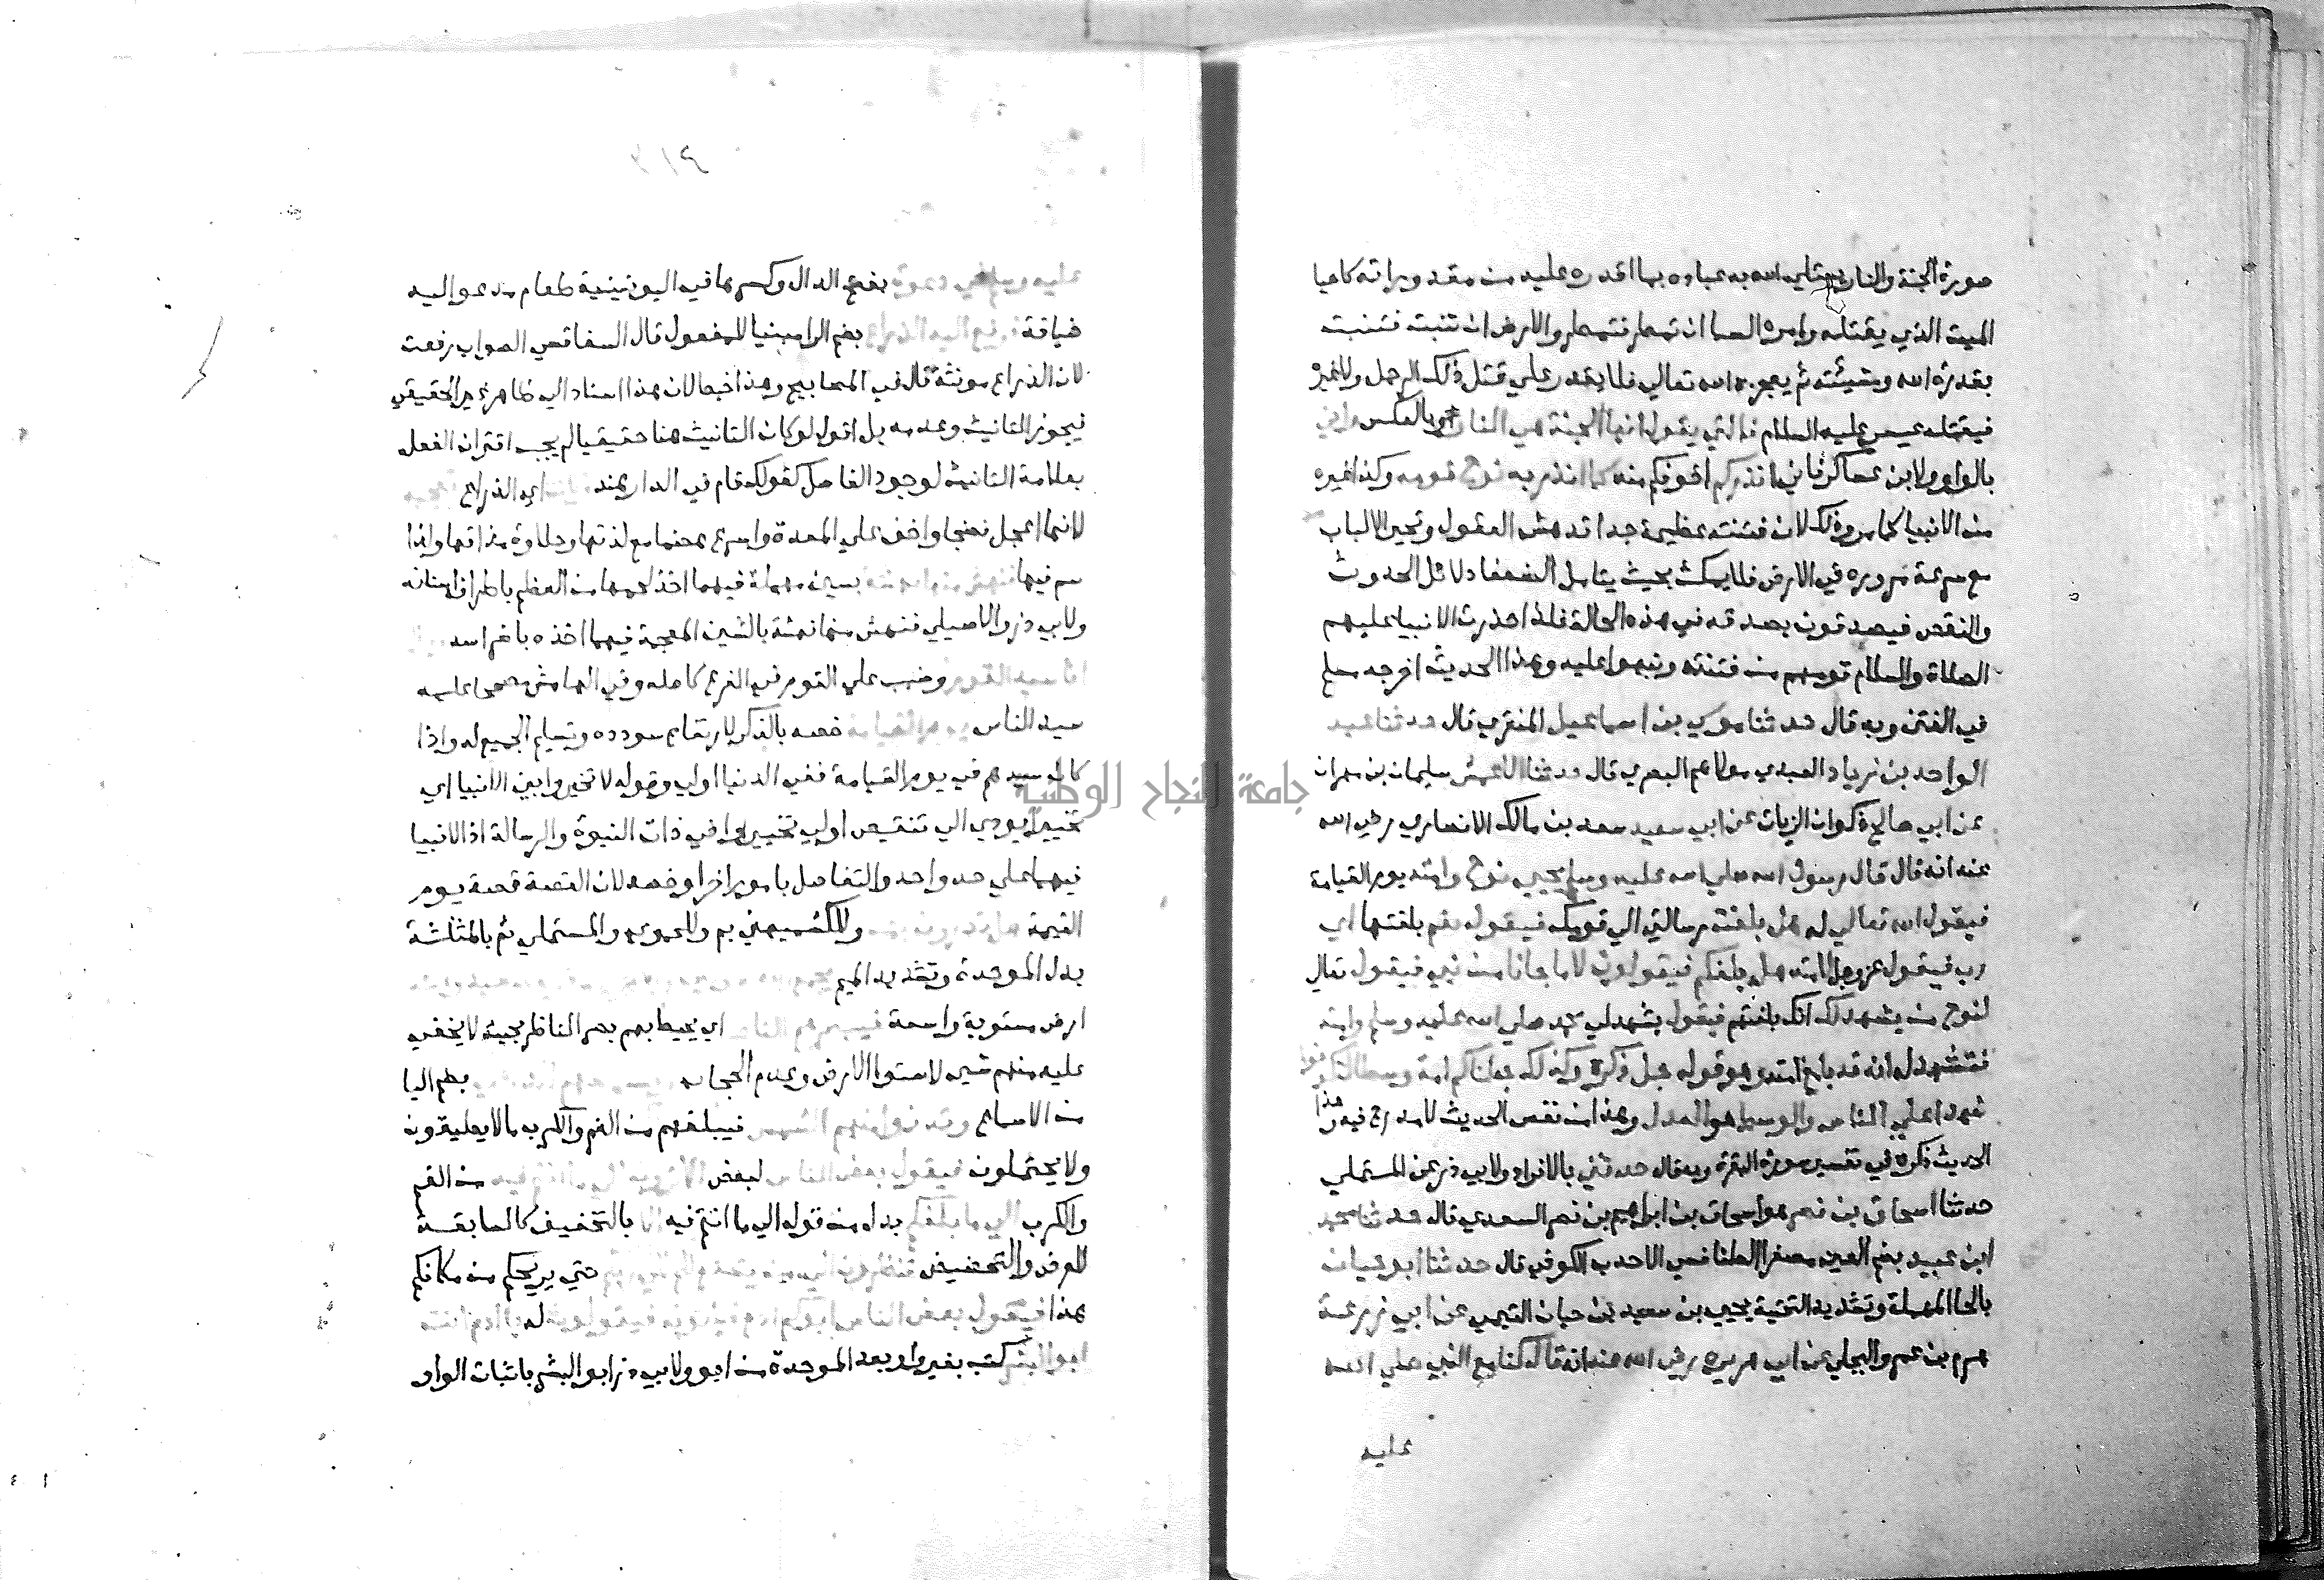 صورة الجنة والنار يبتلي الله به عباده بما اقدره عليه من مقدوراته كاحيا
الميت الذي يقتله وامره السما ان تمطر فتمطر والارض ان تنبت فتنبت
بقدرة الله ومشيئته ثم يعجزه الله تعالي فلا يقدر علي قتل ذلك الرجل ولا غيره
فيقتله عيسي عليه السلام فالتي يقول انها الجنة هي النار وبالعكس واني
بالواو ولابن عساكر فاني انذركم اخوفكم منه كما انذر به نوح قومه وكذا غيره
من الانبيا كما مر وذلك لان فتنته عظيمة جدا تدهش العقول وتحير الالباب
مع سرعة مروره في الارض فلا يمكث بحيث يتامل الضعفا دلائل الحدوث
والنقص فيصدقون بصدقه في هذه الحالة فلذا حذرت الانبيا عليهم
الصلاة والسلام قومهم من فتنته ونبهوا عليه وهذا الحديث اخرجه مسلم
في الفتن وبه قال حدثنا موسي بن اسماعيل المنقري قال حدثنا عبد
الواحد بن زياد العبدي مولاهم البصري قال حدثنا الاعمش سليمان بن مهران
عن ابي صالح ذكوان الزيات عن ابي سعيد سعد بن مالك الانصاري رضي الله
عنه انه قال قال رسول الله صلي الله عليه وسلم يجيي نوح وامته يوم القيامة
فيقول الله تعالي له هل بلغت رسالتي الي قومك فيقول نعم بلغتها اي
رب فيقول عز وجل لامته هل بلغكم فيقولون لا ما جانا من نبي فيقول تعالي
لنوح من يشهد لك انك بلغتهم فيقول يشهد لي محمد صلي الله عليه وسلم وامته
فتشهد له انه قد بلغ امته وهو قوله جل ذكره وكذلك جعلناكم امة وسطا لتكونوا
شهدا علي الناس والوسط هو العدل وهذا من نفس الحديث لا مدرج فيه وهذا
الحديث ذكره في تفسير سورة البقرة وبه قال حدثني بالافراد ولابي ذر عن المستملي
حدثنا اسحاق بن نصر هو اسحاق بن ابراهيم بن نصر السعدي قال حدثنا محمد
ابن عبيد بضم العين مصغرا الطنافسي الاحدب الكوفي قال حدثنا ابو حيان
بالحا المهملة وتشديد التحتية يحيي بن سعيد بن حيان التيمي عن ابي زرعة
هرم بن عمرو البجلي عن ابي هريرة رضي الله عنه انه قال كنا مع النبي صلي الله
عليه
عليه وسلم في دعوة بفتح الدال وكسرها في اليونينية طعام يدعو اليه
ضيافة فرفع اليه الذراع بضم الرا مبنيا للمفعول قال السفاقسي الصواب رفعت
لان الذراع مونثة قال في المصابيح وهذا خبط لان هذا اسناد الي ظاهر غير الحقيقي
فيجوز التانيث وعدمه بل اقول لو كان التانيث هنا حقيقيا لم يجب اقتران الفعل
بعلامة التانيث لوجود الفاصل كقولك قام في الدار هند اي الذراع
لانها اعجل نضجا واخف علي المعدة واسرع هضما مع لذتها وحلاوة مذاقها ولذا
سم فيها فنهس منها نهسة بسين مهملة فيهما اخذ لحمها من العظم باطراف اسنانه
ولابي ذر والاصيلي فنهش منها نهشة بالشين المعجمة فيهما اخذه باضراسه
انا سيد القوم وضبب علي القوم في الفرع كاصله وفي الهامش مصححا عليه
سيد الناس يوم القيامة خصه بالذكر لارتفاع سودده وتسليم الجميع له واذا
كان سيدهم في يوم القيامة ففي الدنيا اولي وقوله لا تخيروا بين الانبيا اي
تخييرا يودي الي تنقيص اولي تخييروا في ذات النبوة والرسالة اذ الانبيا
فيهما علي حد واحد والتفاضل بامور اخر او خصه لان القصة قصة يوم
القيمة هل تدرون بمن وللكشميهني بم وللحموي والمستملي ثم بالمثلثة
بدل الموحدة وتشديد الميم
ارض مستوية واسعة فيبصرهم الناظر اي يحيط بهم بصر الناظر بحيث لا يخفي
عليه منهم شي لاستوا الارض وعدم الحجاب بضم اليا
من الاسماع وتدنو منهم الشمس فيبلغهم من الغم والكرب ما لا يطيقون
ولا يحتملون فيقول بعض الناس لبعض من الغم
والكرب الي ما بلغكم بدل من قوله الي ما انتم فيه الا بالتخفيف كالسابقة
للعرض والتحضيض حتي يريحكم من مكانكم
هذا فيقول بعض الناس ابوكم ادم فياتونه فيقولون له يا ادم انت
ابو البشر كتب بغير واو بعد الموحدة من ابو ولابي ذر ابو البشر باثبات الواو
جامعة النجاح الوطنية